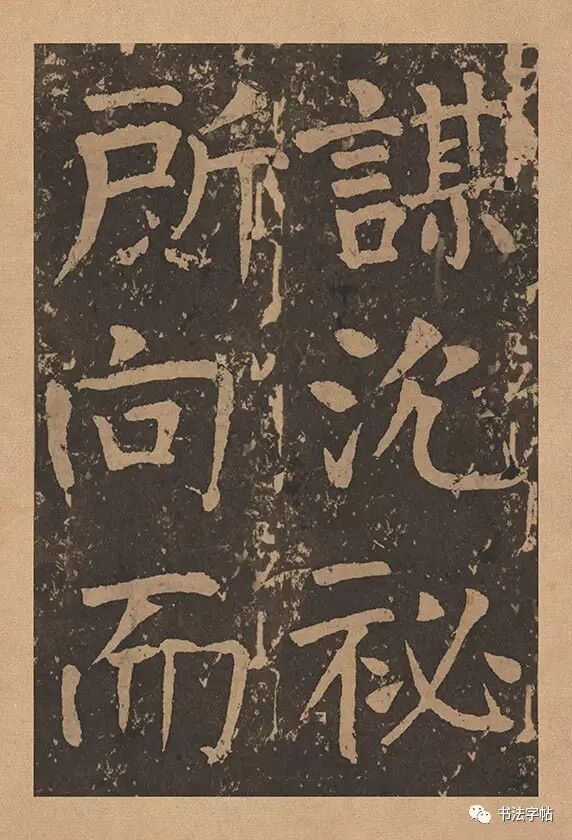 謀沉祕
所向而
书法字帖